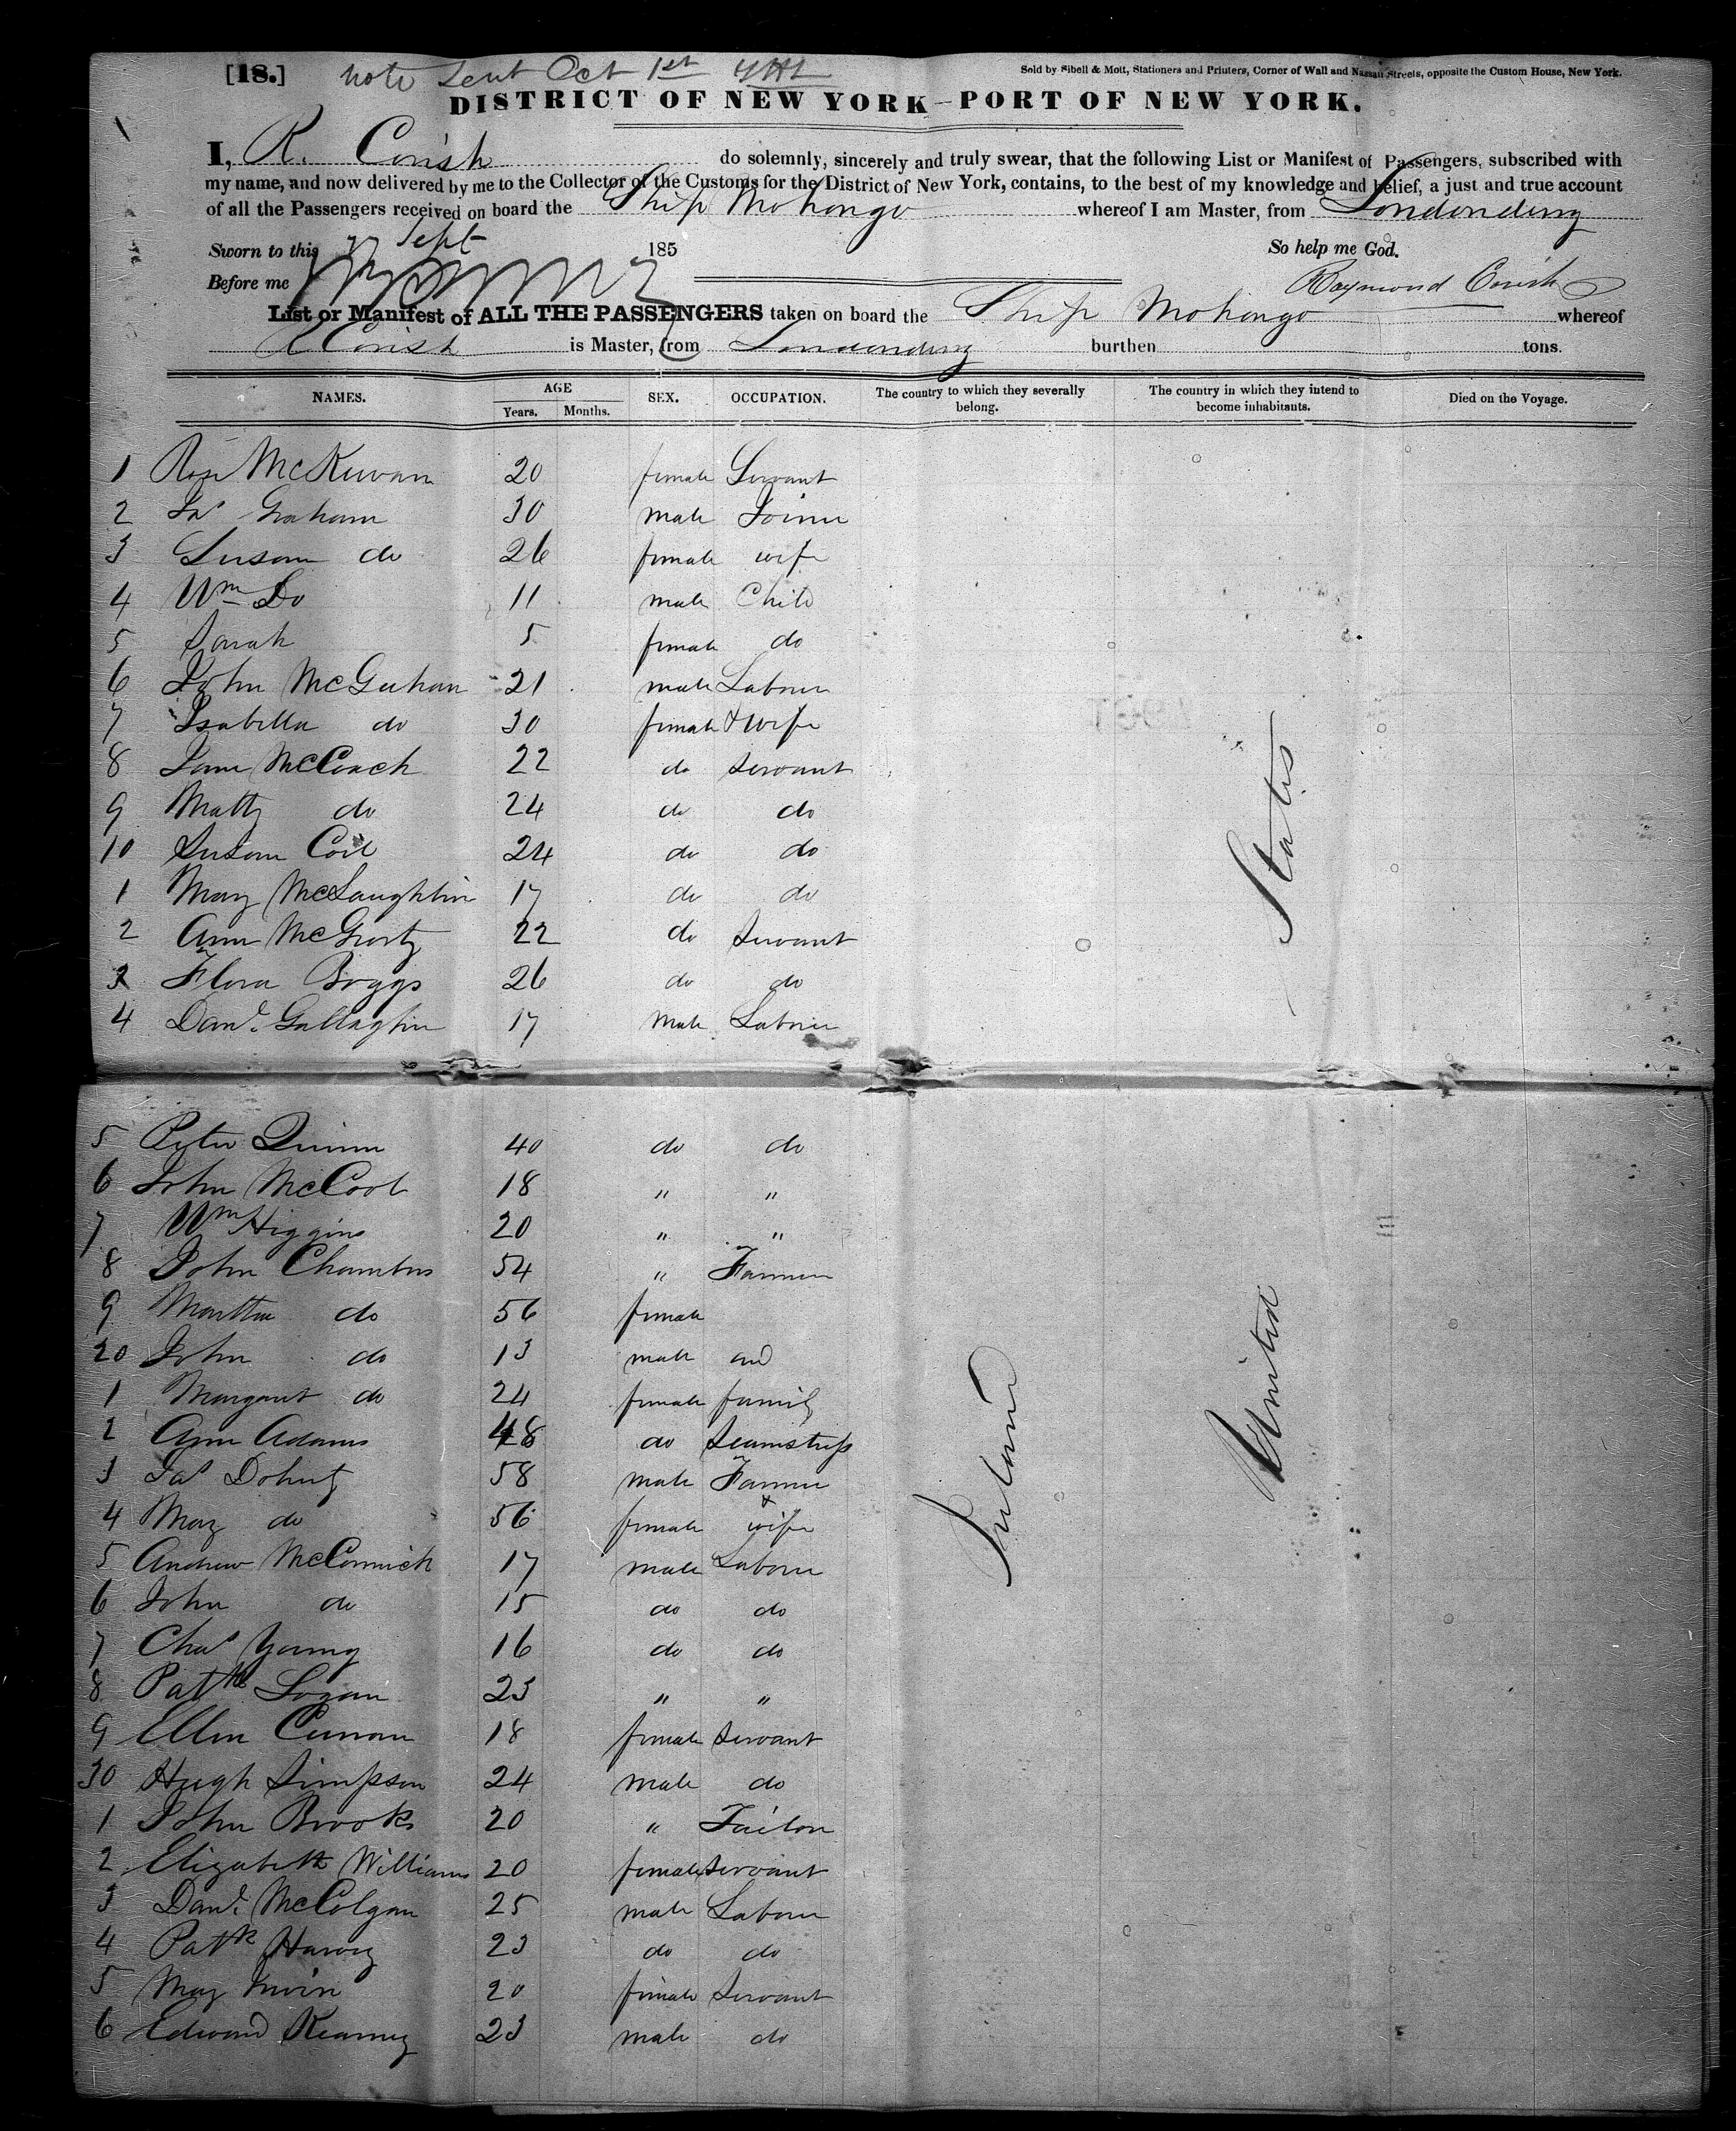 [18.] note sent Oct 1st
Sold by Sibell & Mott, Stationers and Printers, Corner of Wall and Nassau Streets, opposite the Custom House, New York.
DISTRICT OF NEW YORK—PORT OF NEW YORK.
I, R. Corish do solemnly, sincerely and truly swear, that the following List or Manifest of Passengers, subscribed with
my name, and now delivered by me to the Collector of the Customs for the District of New York, contains, to the best of my knowledge and belief, a just and true account
of all the Passengers received on board the Ship Mohongo whereof I am Master, from Londonderry
Sworn to this Sept 185 So help me God.
Before me Raymond Corish
List or Manifest of ALL THE PASSENGERS taken on board the Ship Mohongo whereof
R Corish is Master, from Londonderry burthen tons.
NAMES. AGE Years. Months. SEX. OCCUPATION. The country to which they severally belong. The country in which they intend to become inhabitants. Died on the Voyage.
1 Rose McKewan 20 female Servant
2 Jas Graham 30 male Joiner
3 Susan do 26 female wife
4 Wm Do 11 male Child
5 Sarah 5 female do
6 John McGuhan 21 male Labourer
7 Isabella do 30 female & wife
8 Jane McConach 22 do servant
9 Matty do 24 do do
10 Susan Coil 24 do do
1 Mary McLaughlin 17 do do
2 Ann McGrorty 22 do servant
3 Flora Boggs 26 do do
4 Danl. Gallagher 17 male Labourer
5 Peter Quinn 40 do do
6 John McCool 18 " "
7 Wm Higgins 20 " "
8 John Chambers 54 " Farmer
9 Martha do 56 female
20 John do 13 male and
1 Margaret do 24 female family
2 Ann Adams 48 do Seamstress
3 Jas Doherty 58 male Farmer
4 Mary do 56 female & wife
5 Andrew McCormick 17 male Labourer
6 John do 15 do do
7 Chas Young 16 do do
8 Patk Logan 23 " "
9 Ellen Curran 18 female servant
30 Hugh Simpson 24 male do
1 John Brooks 20 " Tailor
2 Elizabeth Williams 20 female servant
3 Danl. McColgan 25 male Labourer
4 Patk Harvey 23 do do
5 Mary Irwin 20 female Servant
6 Edward Kearney 23 male do
Ireland
United States